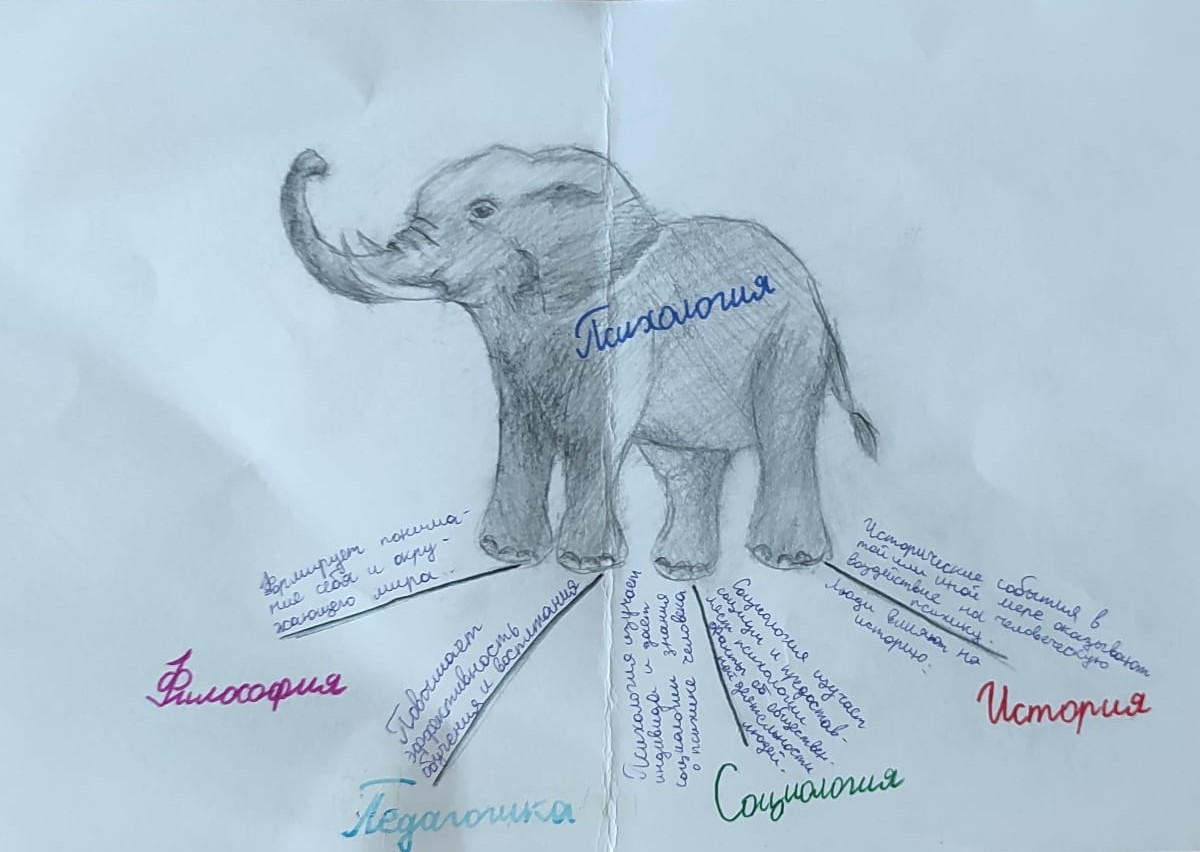 Психология
Формирует понима-
ние себя и окру-
жающего мира.
Философия
Повышает
эффективность
обучения и воспитания
Педагогика
Психология изучает
индивида и дает
социологии знания
о психике человека
Социология изучает
социум и предостав-
ляет психологии
факты об обществен-
ной деятельности
людей.
Социология
Исторические события в
той или иной мере оказывают
воздействие на человеческую
психику.
Люди влияют на
историю.
История